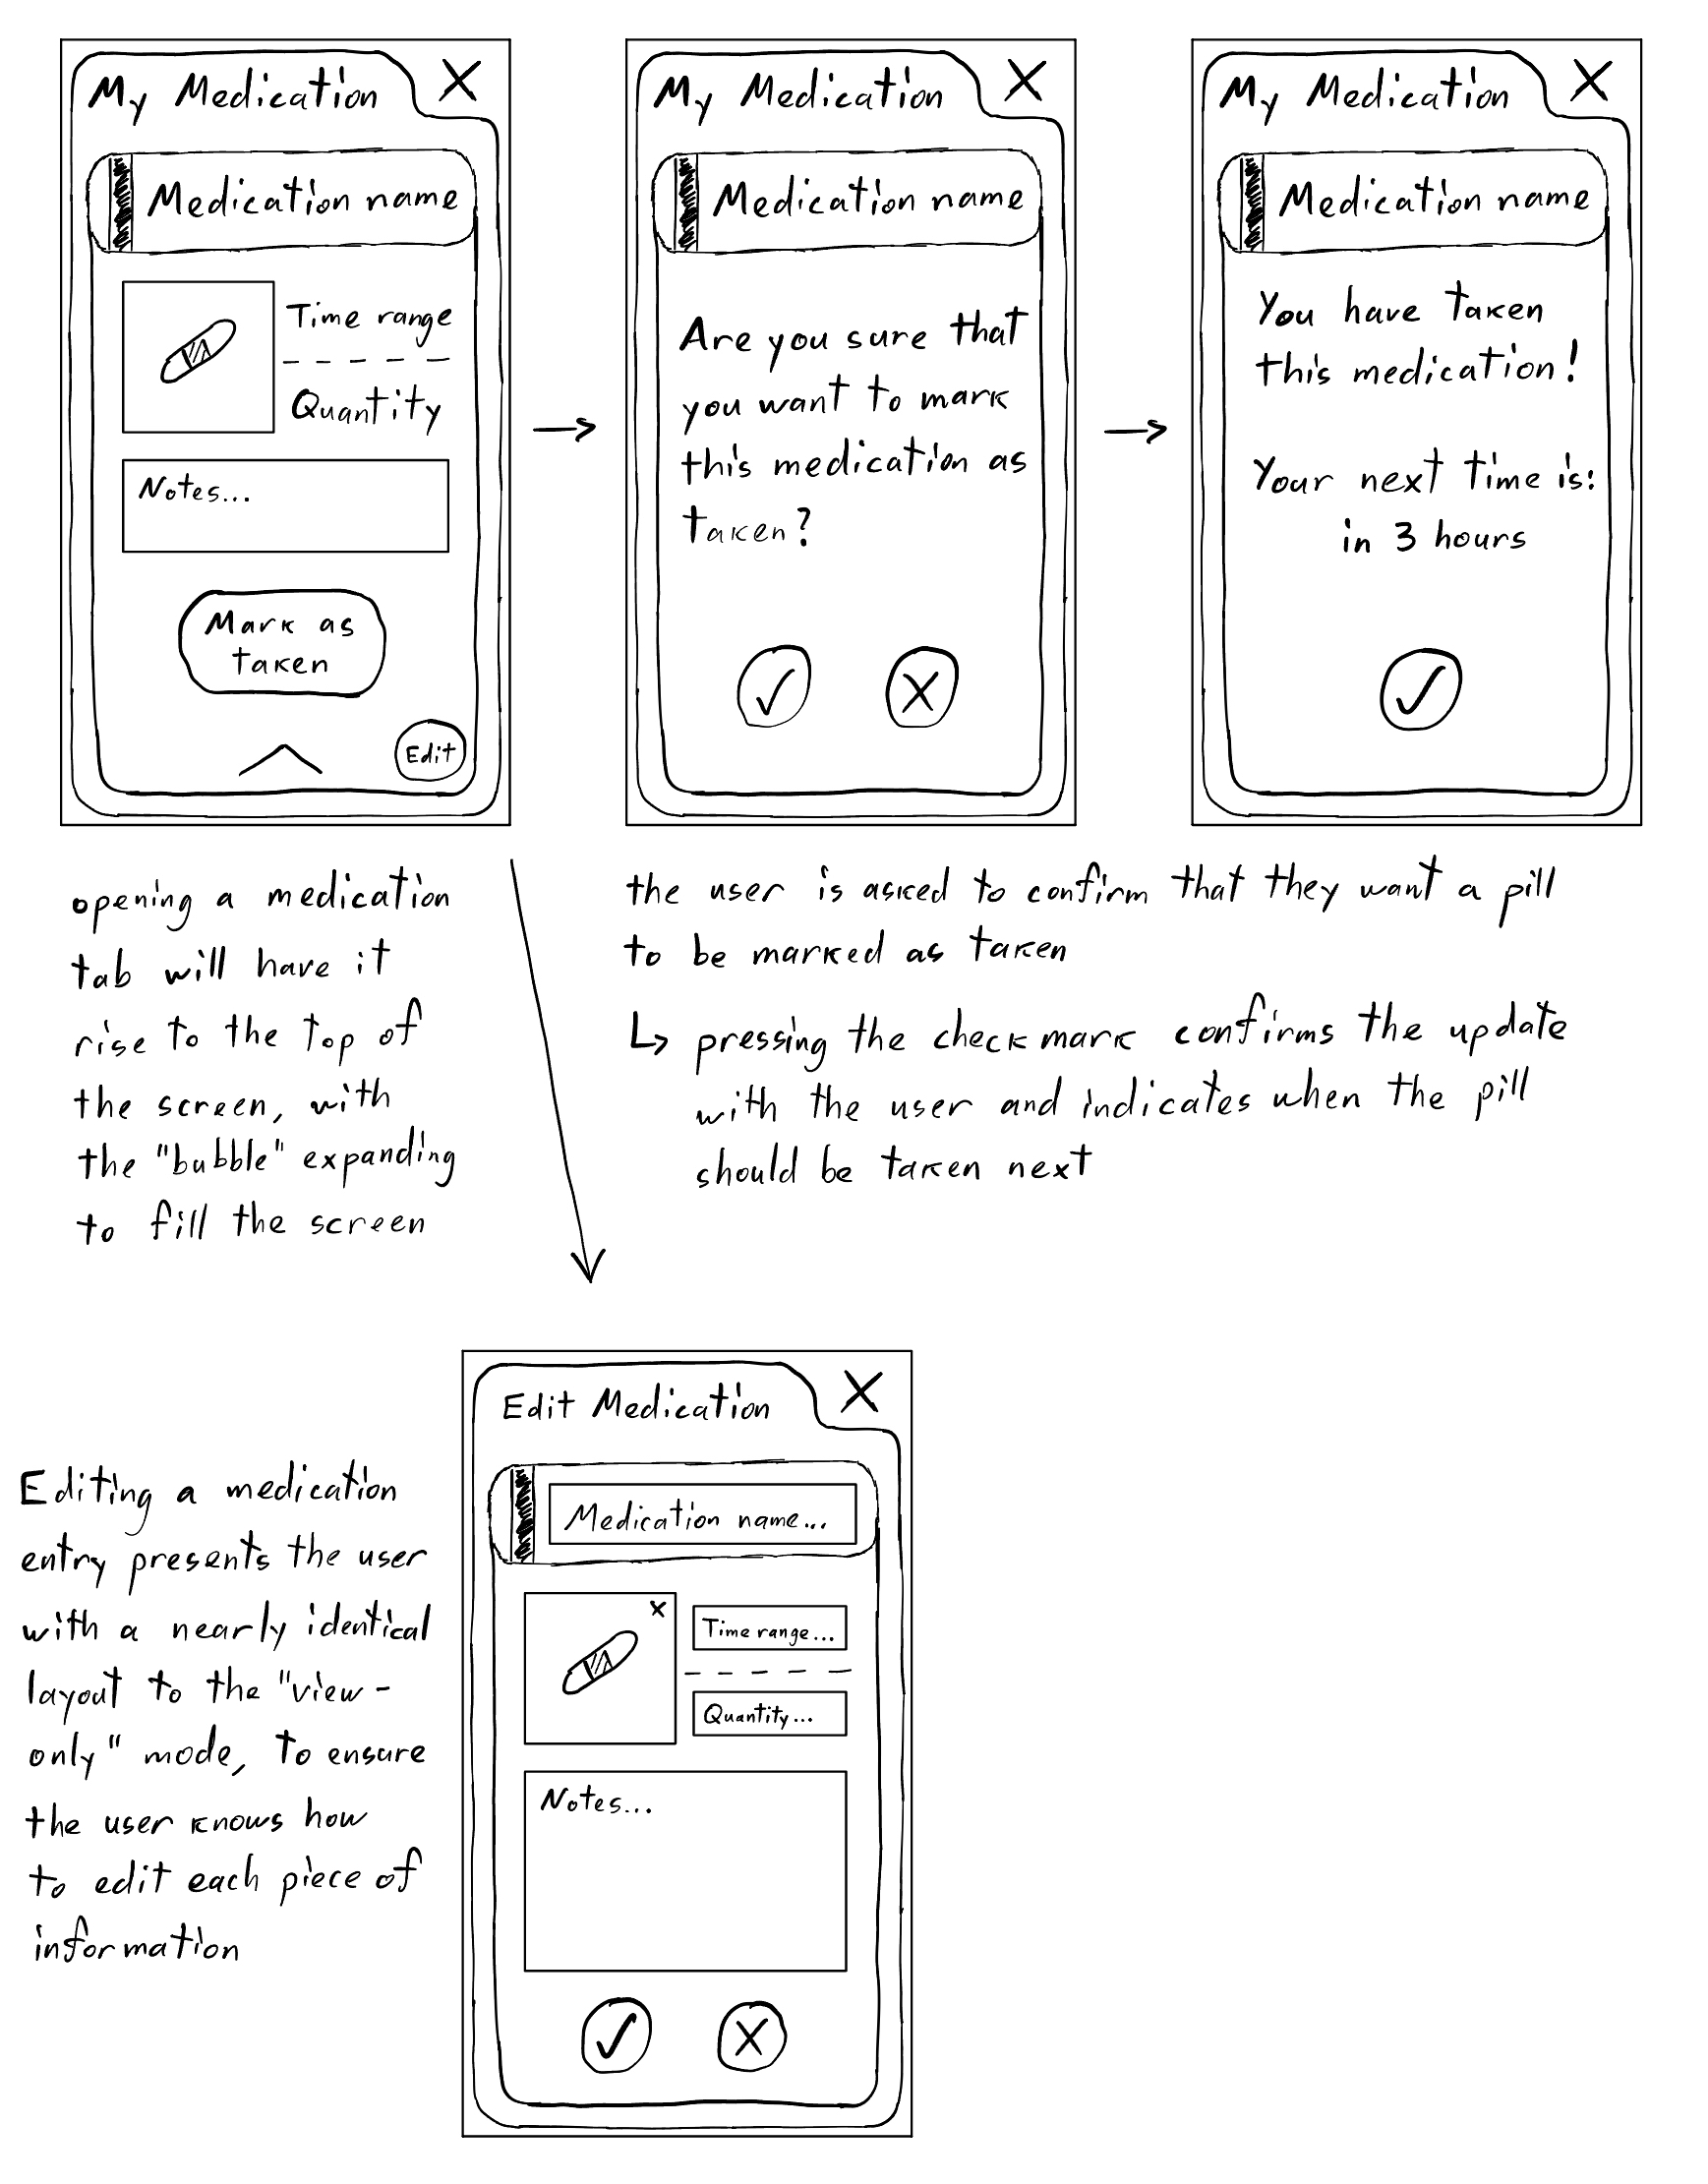 My Medication X
Medication name
Time range
Quantity
Notes...
Mark as
taken
Edit
My Medication X
Medication name
Are you sure that
you want to mark
this medication as
taken?
My Medication X
Medication name
You have taken
this medication!
Your next time is:
in 3 hours
opening a medication
tab will have it
rise to the top of
the screen, with
the "bubble" expanding
to fill the screen
the user is asked to confirm that they want a pill
to be marked as taken
↳ pressing the checkmark confirms the update
with the user and indicates when the pill
should be taken next
Editing a medication
entry presents the user
with a nearly identical
layout to the "view-
only" mode, to ensure
the user knows how
to edit each piece of
information
Edit Medication X
Medication name...
x
Time range...
Quantity...
Notes...